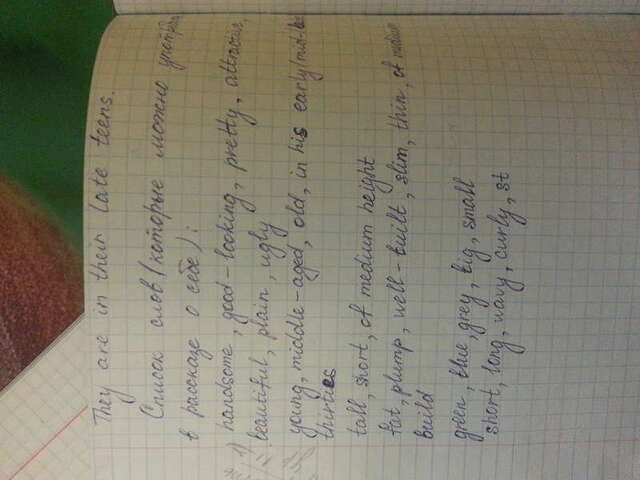 They are in their late teens.
Список слов (которые можно
в рассказе о себе):
handsome, good-looking, pretty, attractive,
beautiful, plain, ugly
young, middle-aged, old, in his early/mid-
thirties
tall, short, of medium height
fat, plump, well-built, slim, thin, of medium
build
green, blue, grey, big, small
short, long, wavy, curly, st